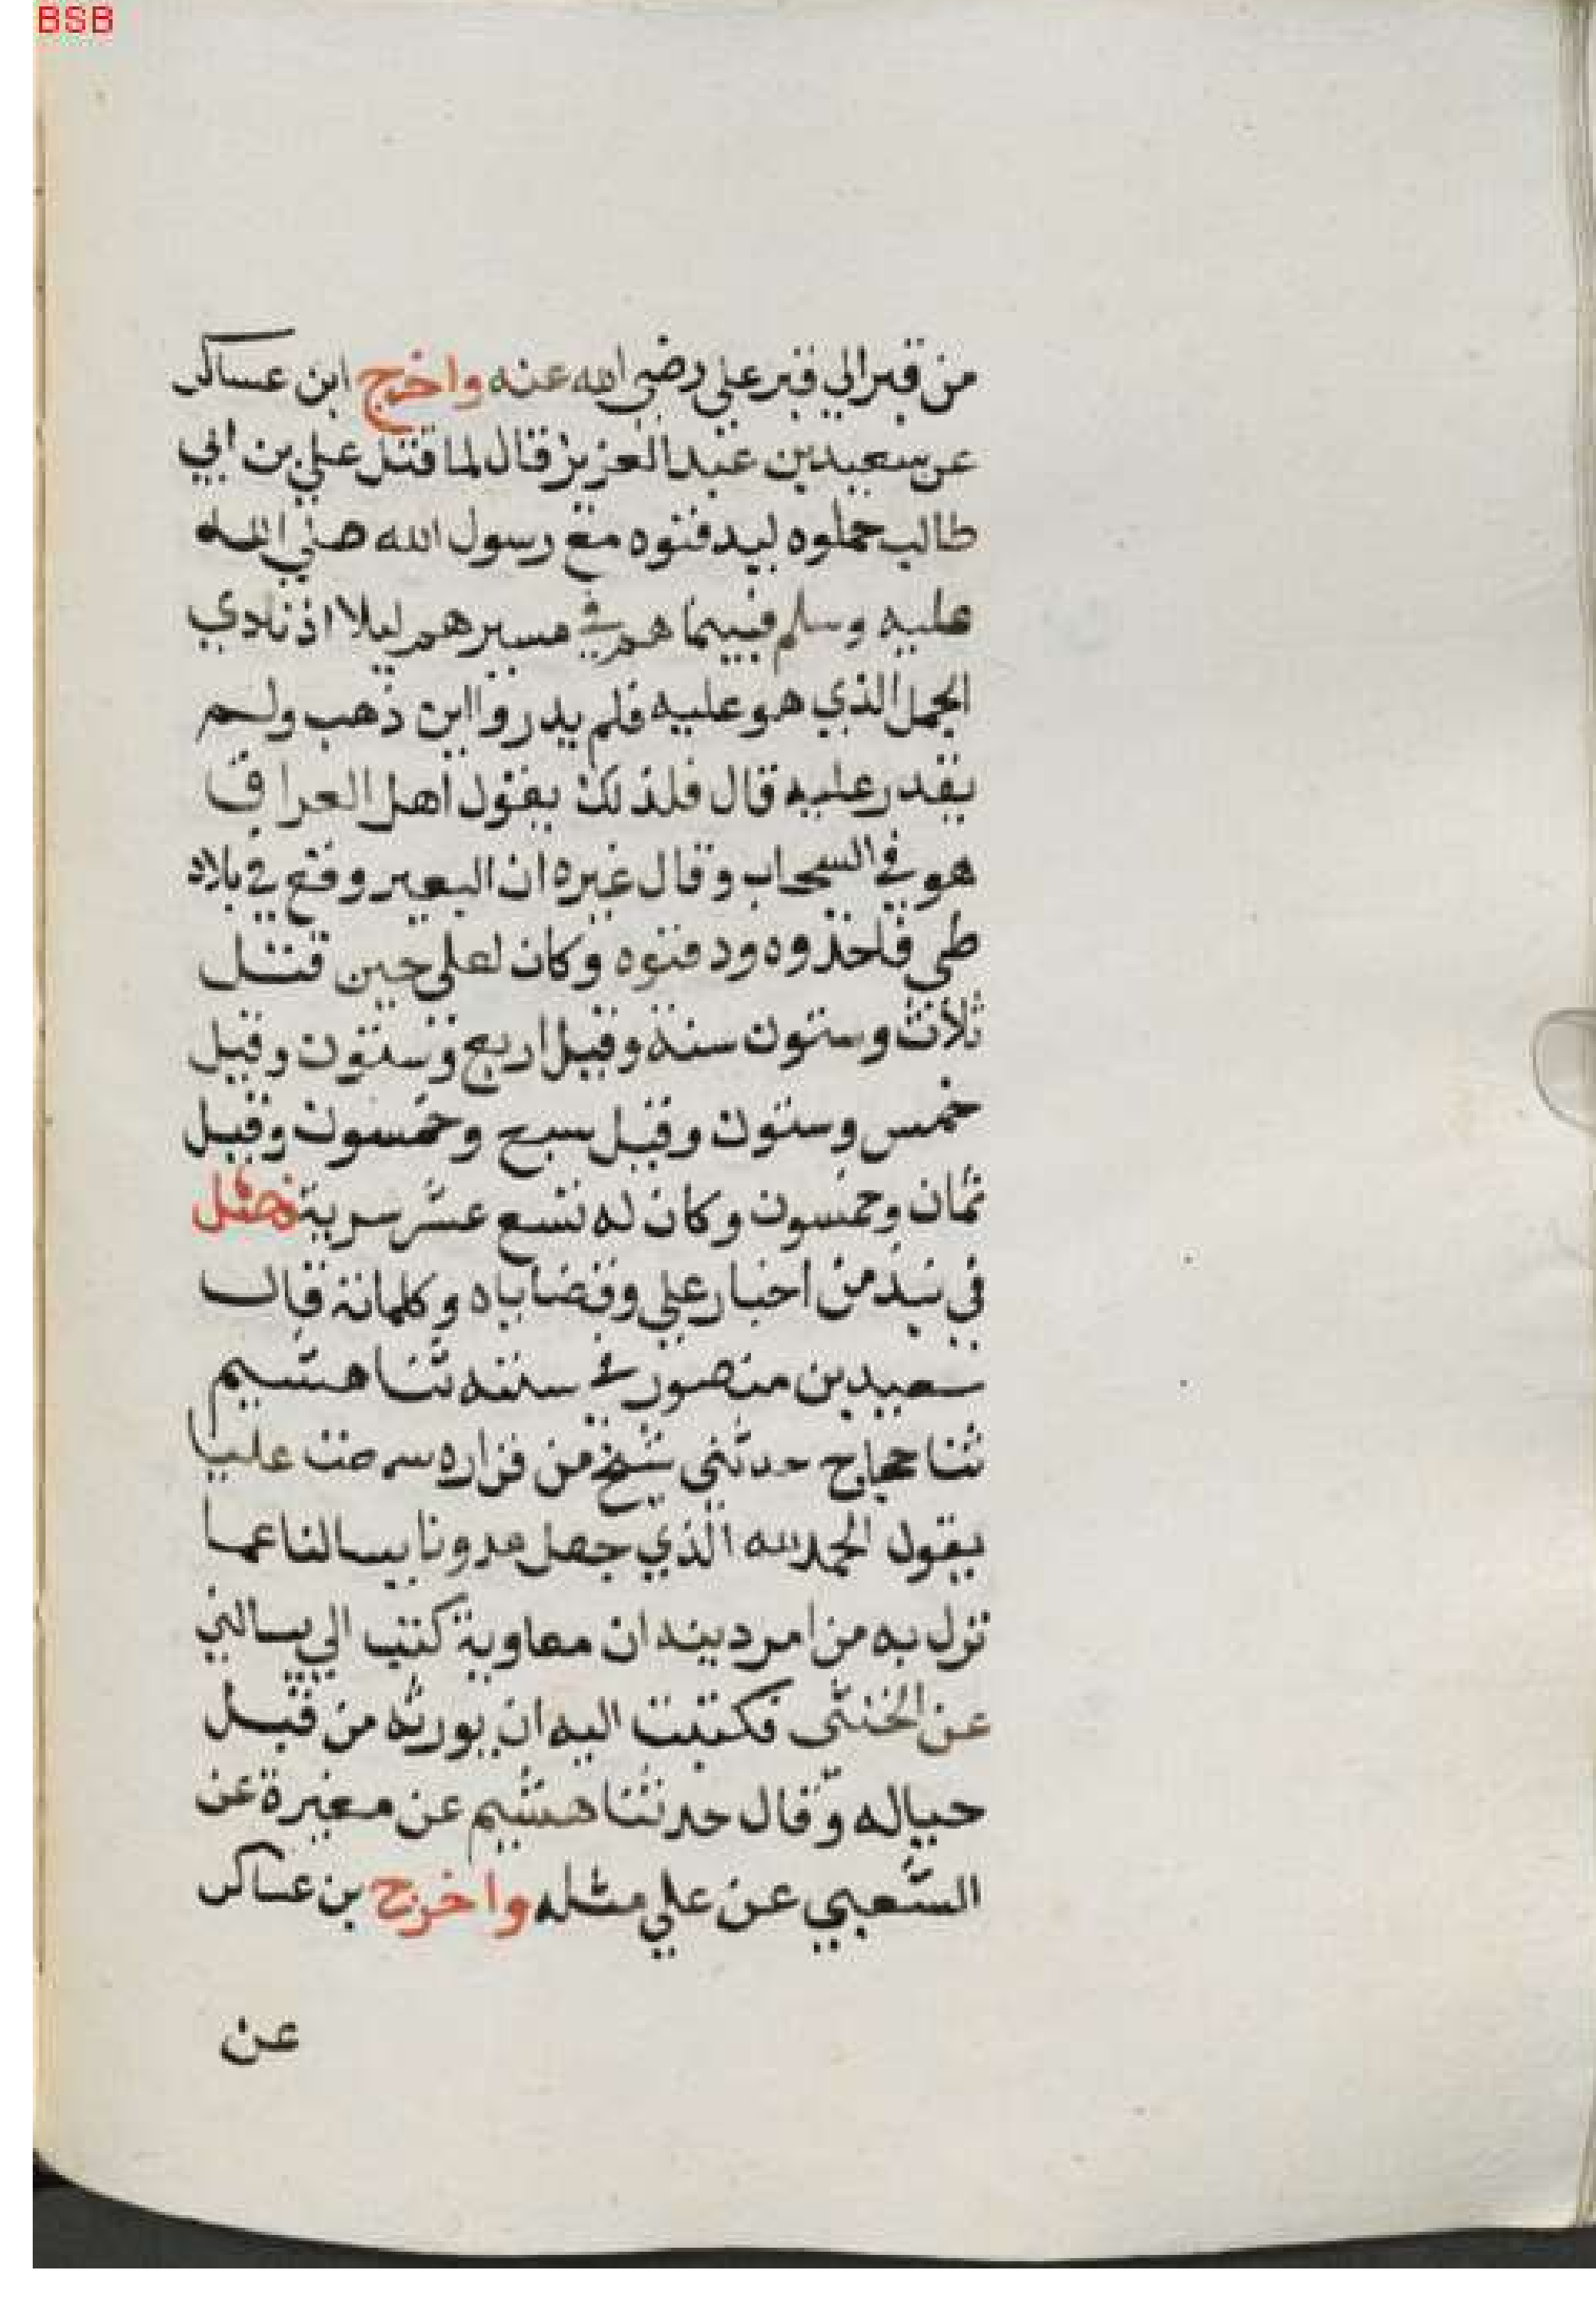 BSB
من قبر الي قبر علي رضي الله عنه واخرج ابن عساكر
عن سعيد بن عبد العزيز قال لما قتل علي بن ابي
طالب حملوه ليدفنوه مع رسول الله صلي الله
عليه وسلم فبينما هم في مسيرهم ليلا اذ نادي
الجمل الذي هو عليه فلم يدروا اين ذهب ولم
يقدر عليه قال فلذلك يقول اهل العراق
هو في السحاب وقال غيره ان البعير وقع في بلاد
طي فاخذوه ودفنوه وكان لعلي حين قتل
ثلاث وستون سنة وقيل اربع وستون وقيل
خمس وستون وقيل سبع وخمسون وقيل
ثمان وخمسون وكان له تسع عشر سرية فصل
في نبذ من اخبار علي وقضاياه وكلماته قال
سعيد بن منصور في سننه ثنا هشيم
ثنا حجاج حدثني شيخ من فزاره سمعت عليا
يقول الحمد لله الذي جعل عدونا يسالنا عما
نزل به من امر دينه ان معاوية كتب الي يسالني
عن الخنثي فكتبت اليه ان يورثه من قبل
حياله وقال حدثنا هشيم عن مغيرة عن
الشعبي عن علي مثله واخرج بن عساكر
عن